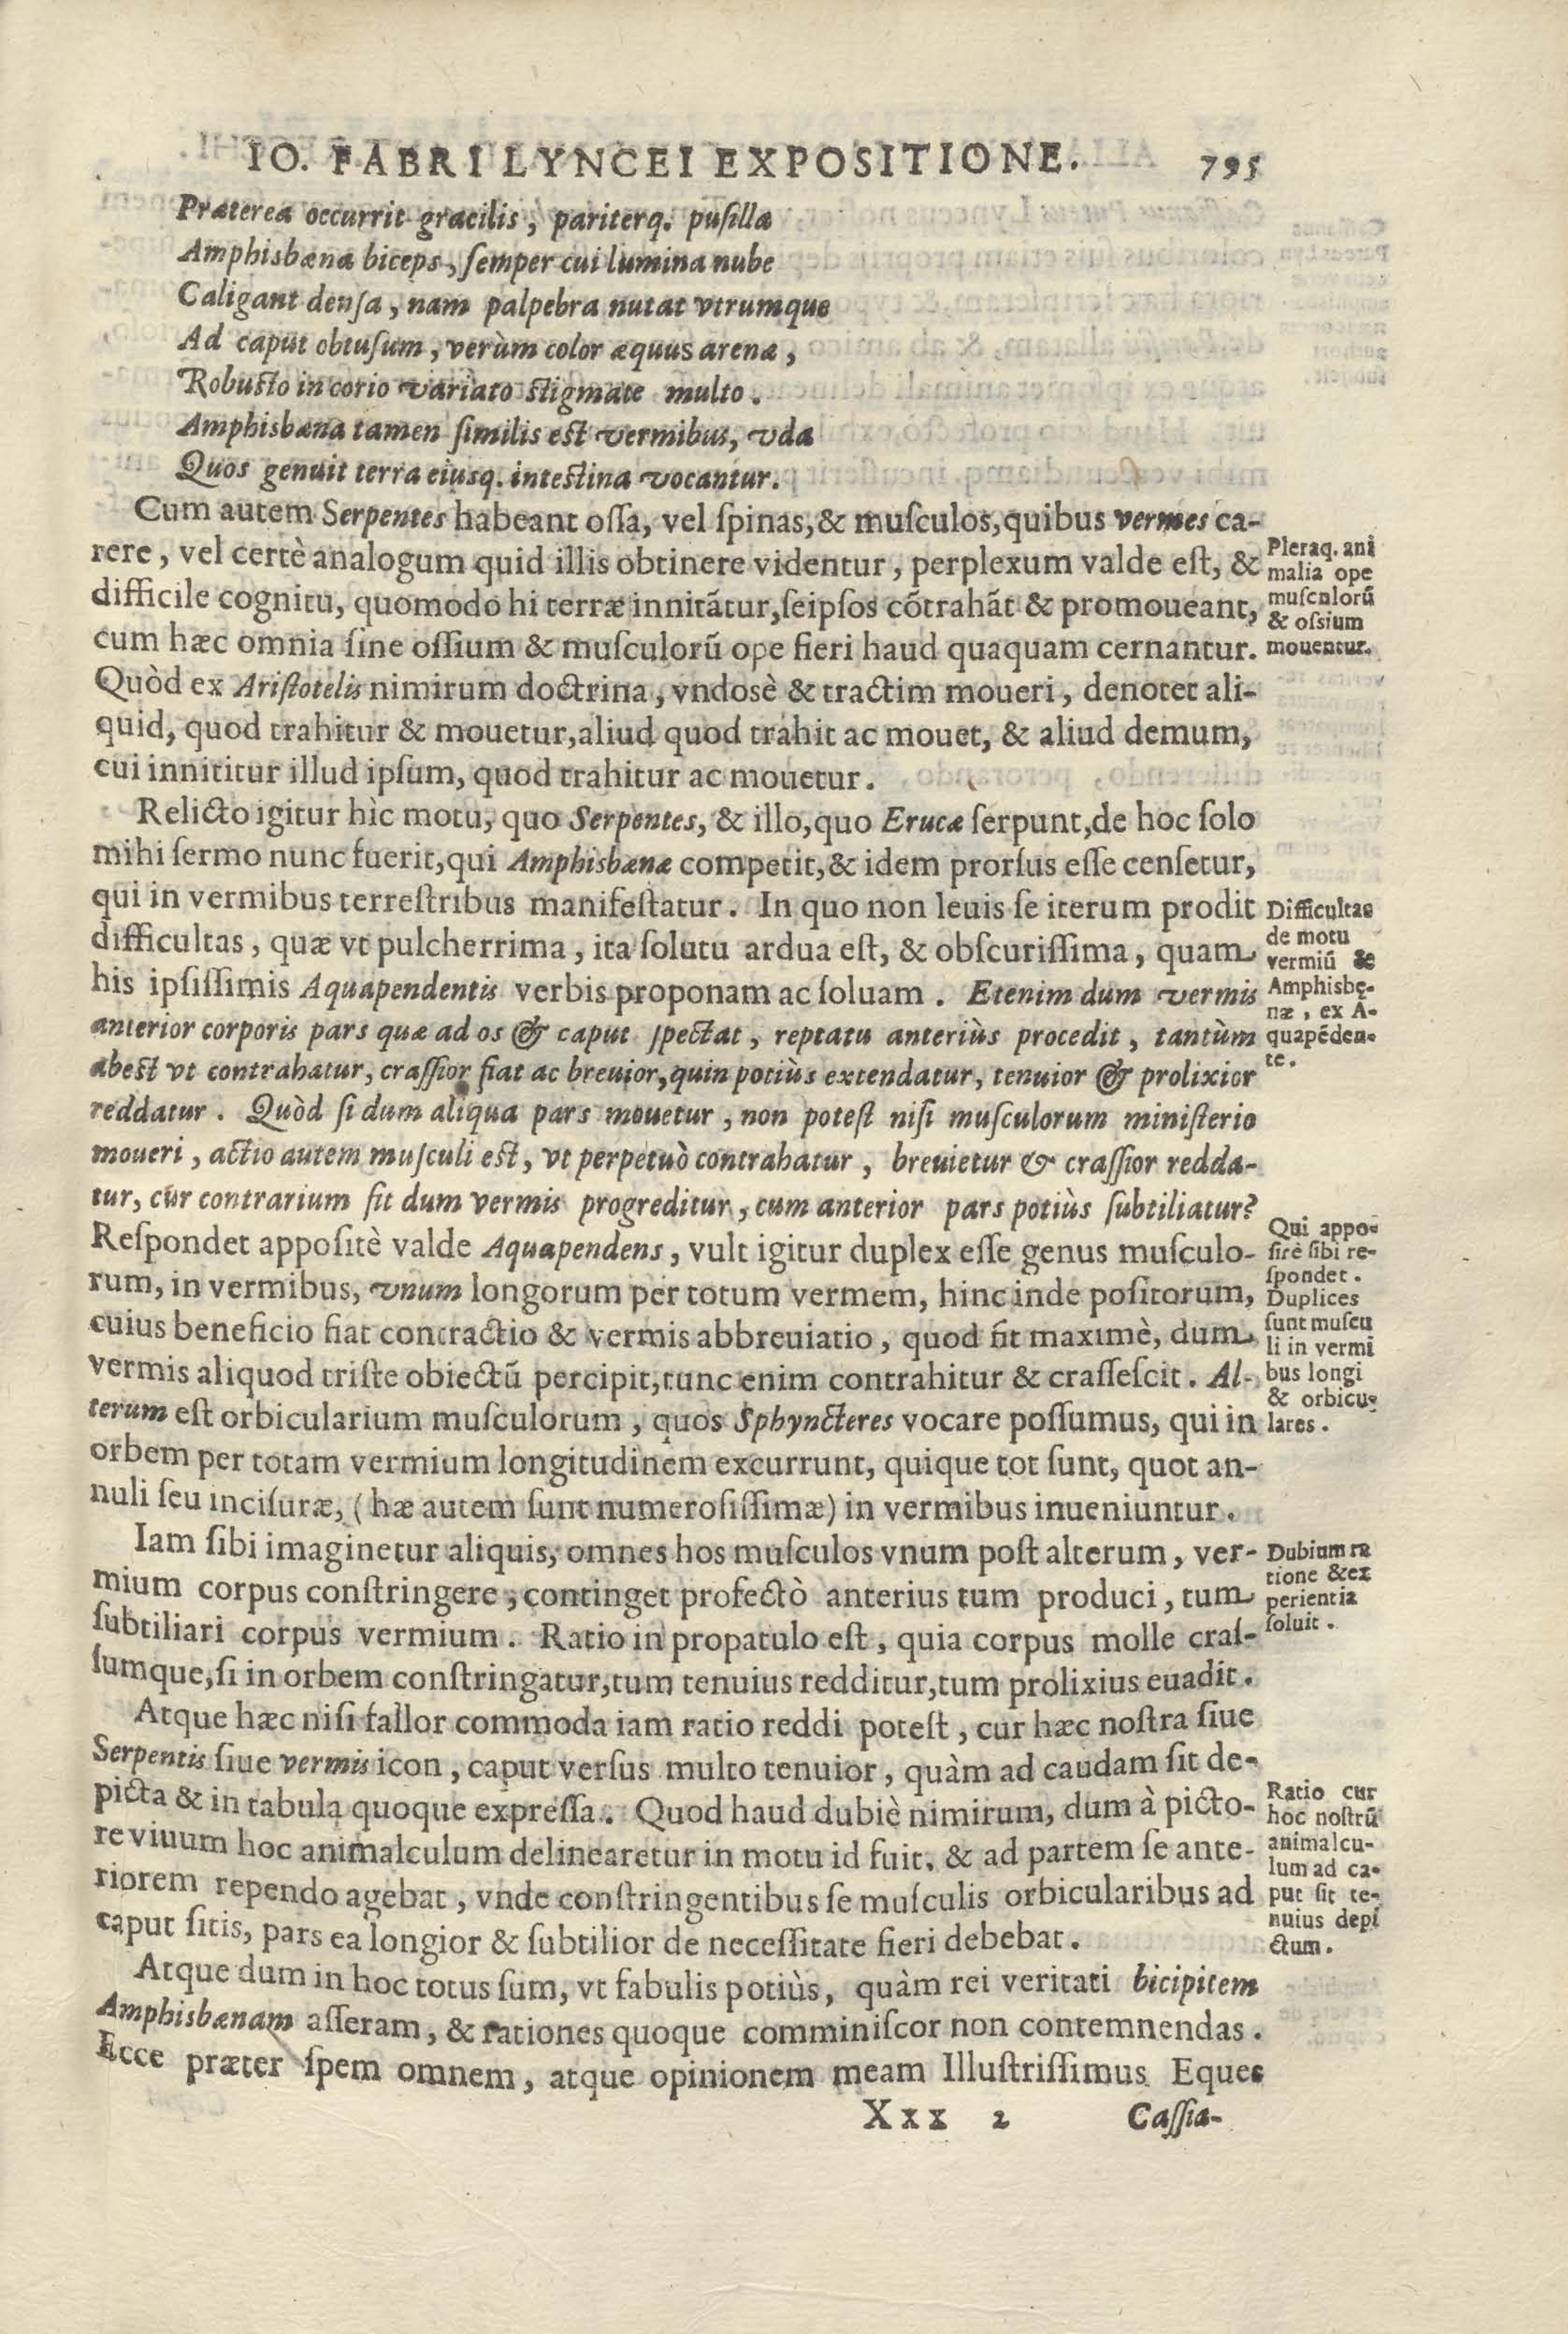 IO. FABRI LYNCEI EXPOSITIONE. 795
Præterea occurrit gracilis, pariterq. pusilla
Amphisbæna biceps, semper cui lumina nube
Caligant densa, nam palpebra nutat vtrumque
Ad caput obtusum, verùm color æquus arenæ,
Robusto in corio variato stigmate multo.
Amphisbæna tamen similis est vermibus, vda
Quos genuit terra eiusq. intestina vocantur.
Cum autem Serpentes habeant ossa, vel spinas, & musculos, quibus vermes ca-
rere, vel certè analogum quid illis obtinere videntur, perplexum valde est, &
difficile cognitu, quomodo hi terræ innitãtur, seipsos cõtrahãt & promoueant,
cum hæc omnia sine ossium & musculorũ ope fieri haud quaquam cernantur.
Quòd ex Aristotelis nimirum doctrina, vndosè & tractim moueri, denotet ali-
quid, quod trahitur & mouetur, aliud quod trahit ac mouet, & aliud demum,
cui innititur illud ipsum, quod trahitur ac mouetur.
Pleraq. ani
malia ope
musculorũ
& ossium
mouentur.
Relicto igitur hìc motu, quo Serpentes, & illo, quo Erucæ serpunt, de hoc solo
mihi sermo nunc fuerit, qui Amphisbænæ competit, & idem prorsus esse censetur,
qui in vermibus terrestribus manifestatur. In quo non leuis se iterum prodit
difficultas, quæ vt pulcherrima, ita solutu ardua est, & obscurissima, quam
his ipsissimis Aquapendentis verbis proponam ac soluam. Etenim dum vermis
anterior corporis pars quæ ad os & caput spectat, reptatu anteriùs procedit, tantùm
abest vt contrahatur, crassior fiat ac breuior, quin potiùs extendatur, tenuior & prolixior
reddatur. Quòd si dum aliqua pars mouetur, non potest nisi musculorum ministerio
moueri, actio autem musculi est, vt perpetuò contrahatur, breuietur & crassior redda-
tur, cur contrarium fit dum vermis progreditur, cum anterior pars potiùs subtiliatur?
Respondet appositè valde Aquapendens, vult igitur duplex esse genus musculo-
rum, in vermibus, vnum longorum per totum vermem, hinc inde positorum,
cuius beneficio fiat contractio & vermis abbreuiatio, quod fit maximè, dum
vermis aliquod triste obiectũ percipit, tunc enim contrahitur & crassescit. Al-
terum est orbicularium musculorum, quos Sphyncteres vocare possumus, qui in
orbem per totam vermium longitudinem excurrunt, quique tot sunt, quot an-
nuli seu incisuræ, (hæ autem sunt numerosissimæ) in vermibus inueniuntur.
Difficultas
de motu
vermiũ &
Amphisbę-
næ, ex A-
quapẽden-
te.
Qui appo-
sitè sibi re-
spondet.
Duplices
sunt muscu
li in vermi
bus longi
& orbicu-
lares.
Iam sibi imaginetur aliquis, omnes hos musculos vnum post alterum, ver-
mium corpus constringere, continget profectò anterius tum produci, tum
subtiliari corpus vermium. Ratio in propatulo est, quia corpus molle cras-
sumque, si in orbem constringatur, tum tenuius redditur, tum prolixius euadit.
Dubium ra
tione & ex
perientia
soluit.
Atque hæc nisi fallor commoda iam ratio reddi potest, cur hæc nostra siue
Serpentis siue vermis icon, caput versus multo tenuior, quàm ad caudam sit de-
picta & in tabula quoque expressa. Quod haud dubiè nimirum, dum à picto-
re viuum hoc animalculum delinearetur in motu id fuit, & ad partem se ante-
riorem rependo agebat, vnde constringentibus se musculis orbicularibus ad
caput sitis, pars ea longior & subtilior de necessitate fieri debebat.
Ratio cur
hoc nostrũ
animalcu-
lum ad ca-
put sit te-
nuius depi
ctum.
Atque dum in hoc totus sum, vt fabulis potiùs, quàm rei veritati bicipitem
Amphisbænam asseram, & rationes quoque comminiscor non contemnendas.
Ecce præter spem omnem, atque opinionem meam Illustrissimus Eques
Xxx 2 Cassia-